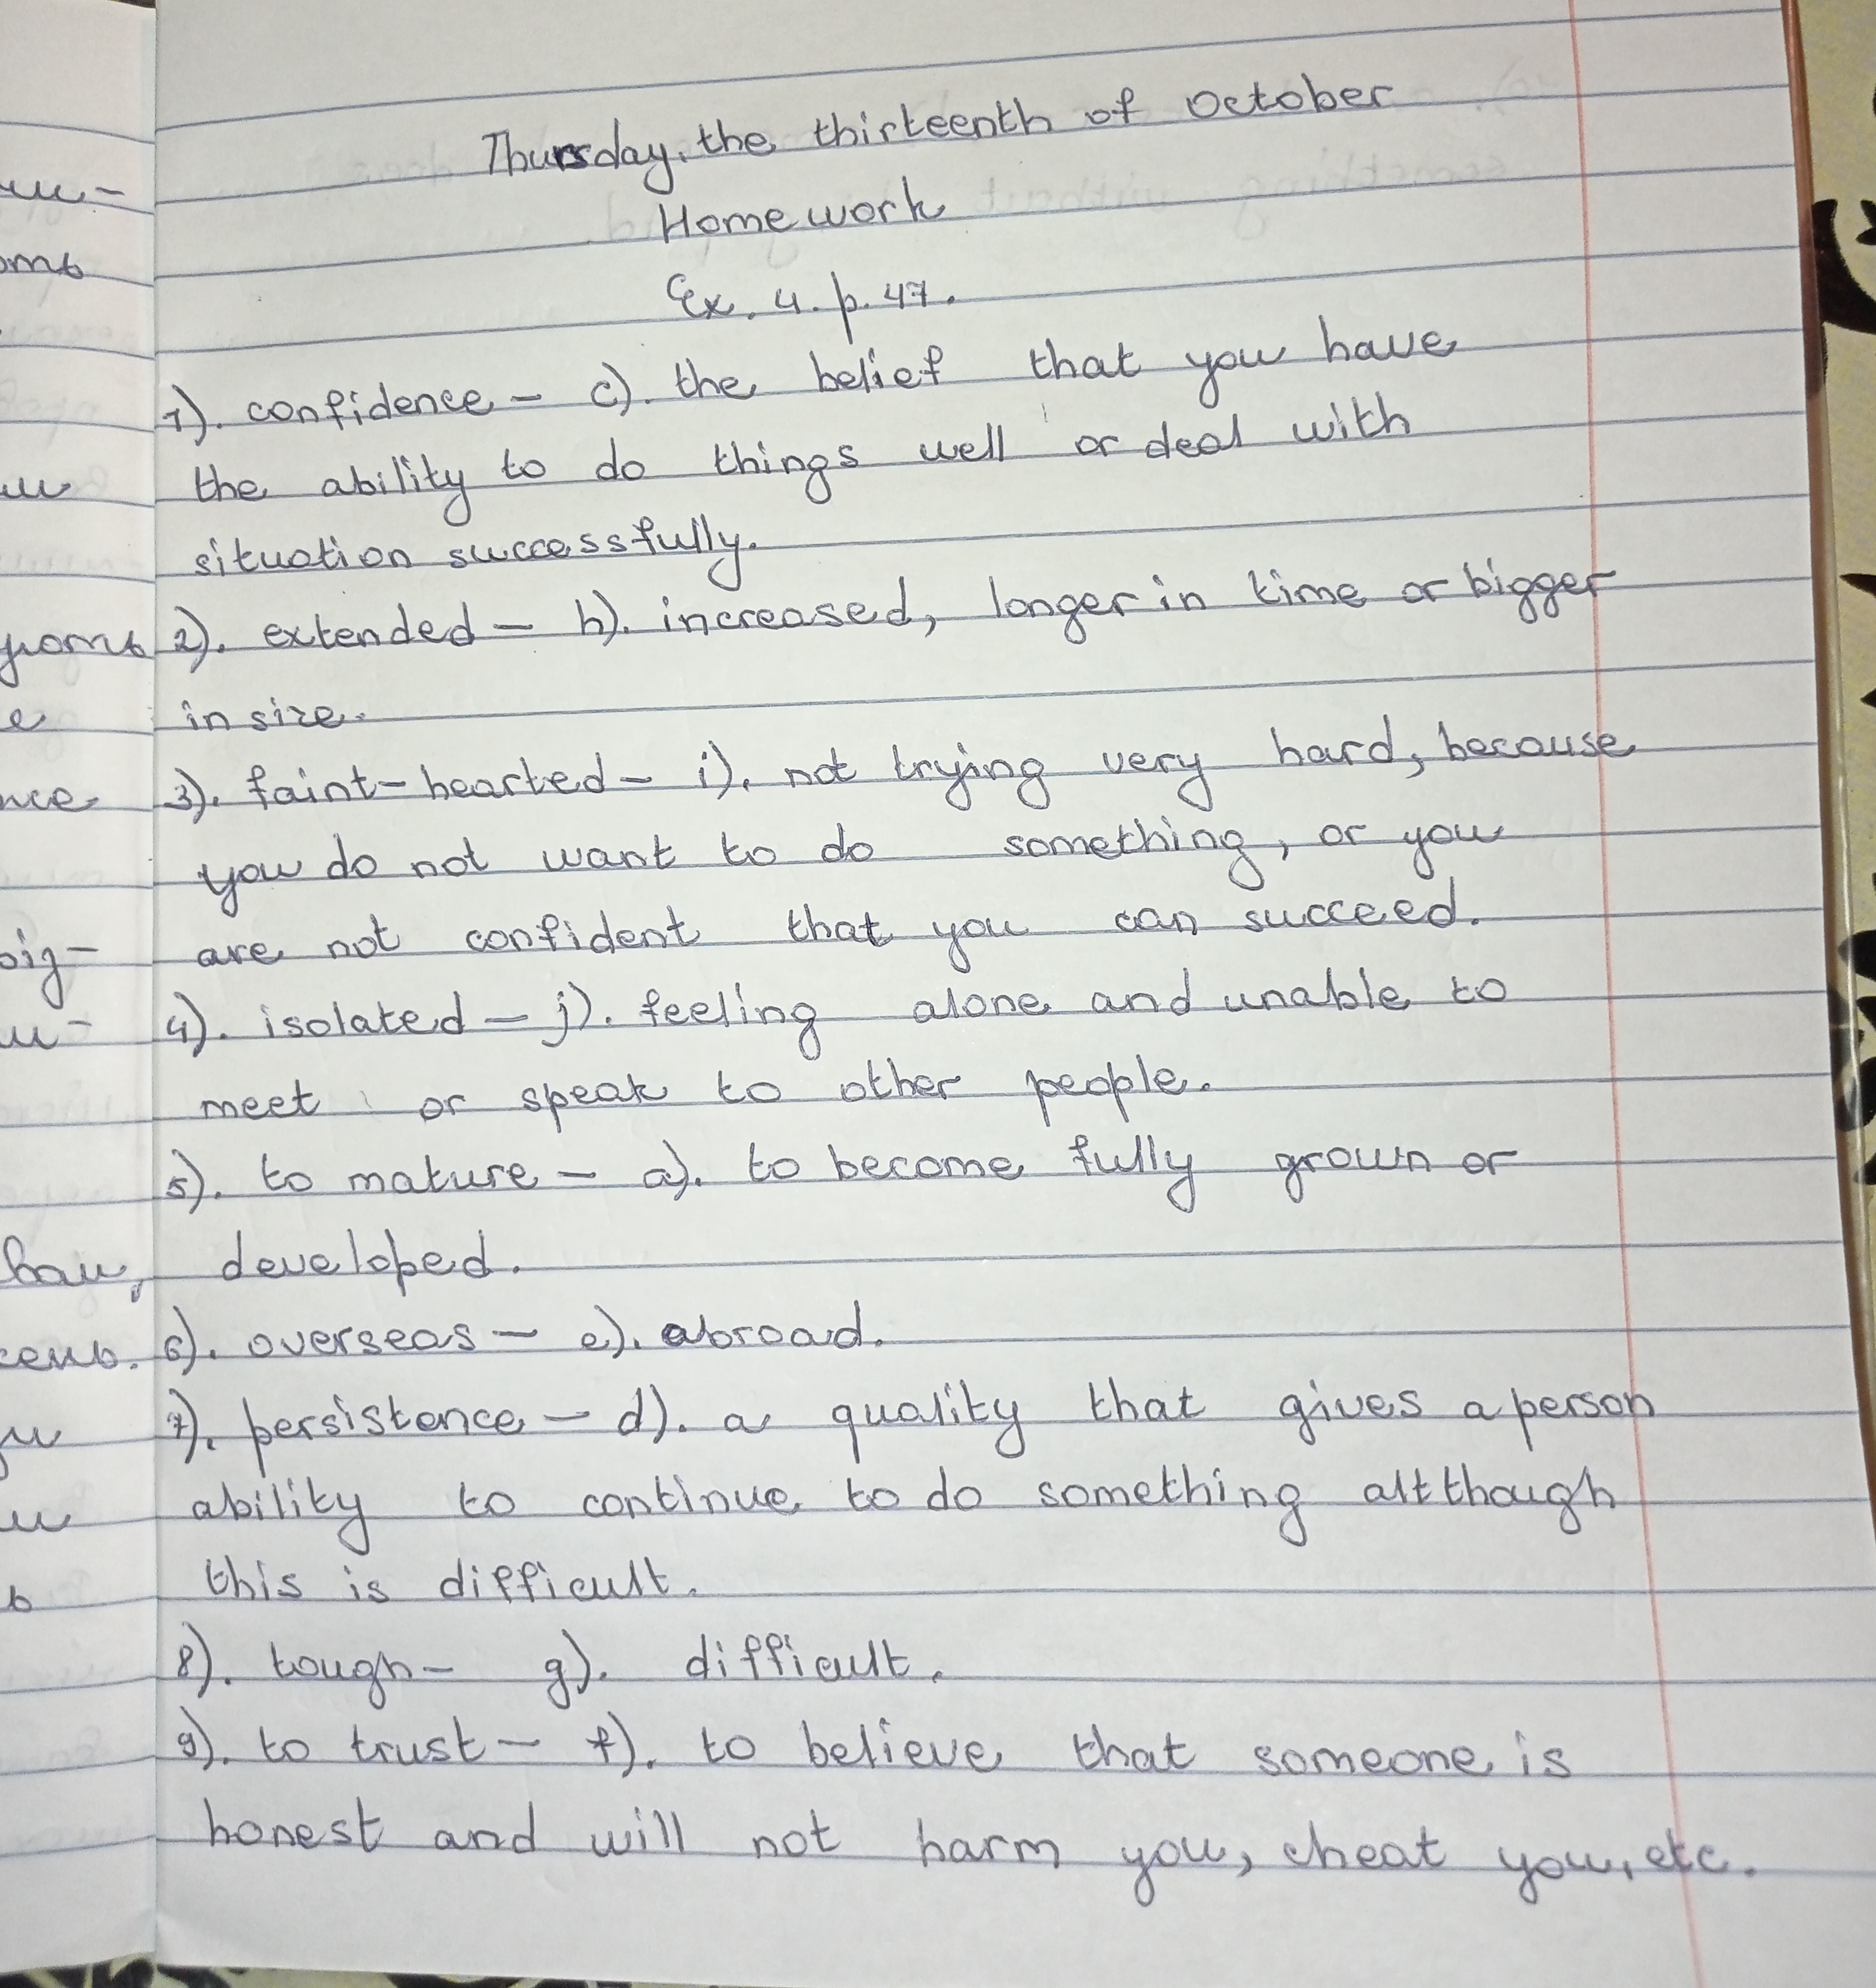 Thursday, the thirteenth of October
Homework
Ex. 4. p. 47.
1). confidence – c). the belief that you have
the ability to do things well or deal with
situation successfully.
2). extended – h). increased, longer in time or bigger
in size.
3). faint-hearted – i). not trying very hard, because
you do not want to do something, or you
are not confident that you can succeed.
4). isolated – j). feeling alone and unable to
meet or speak to other people.
5). to mature – a). to become fully grown or
developed.
6). overseas – e). abroad.
7). persistence – d). a quality that gives a person
ability to continue to do something altthough
this is difficult.
8). tough – g). difficult.
9). to trust – f). to believe that someone is
honest and will not harm you, cheat you, etc.